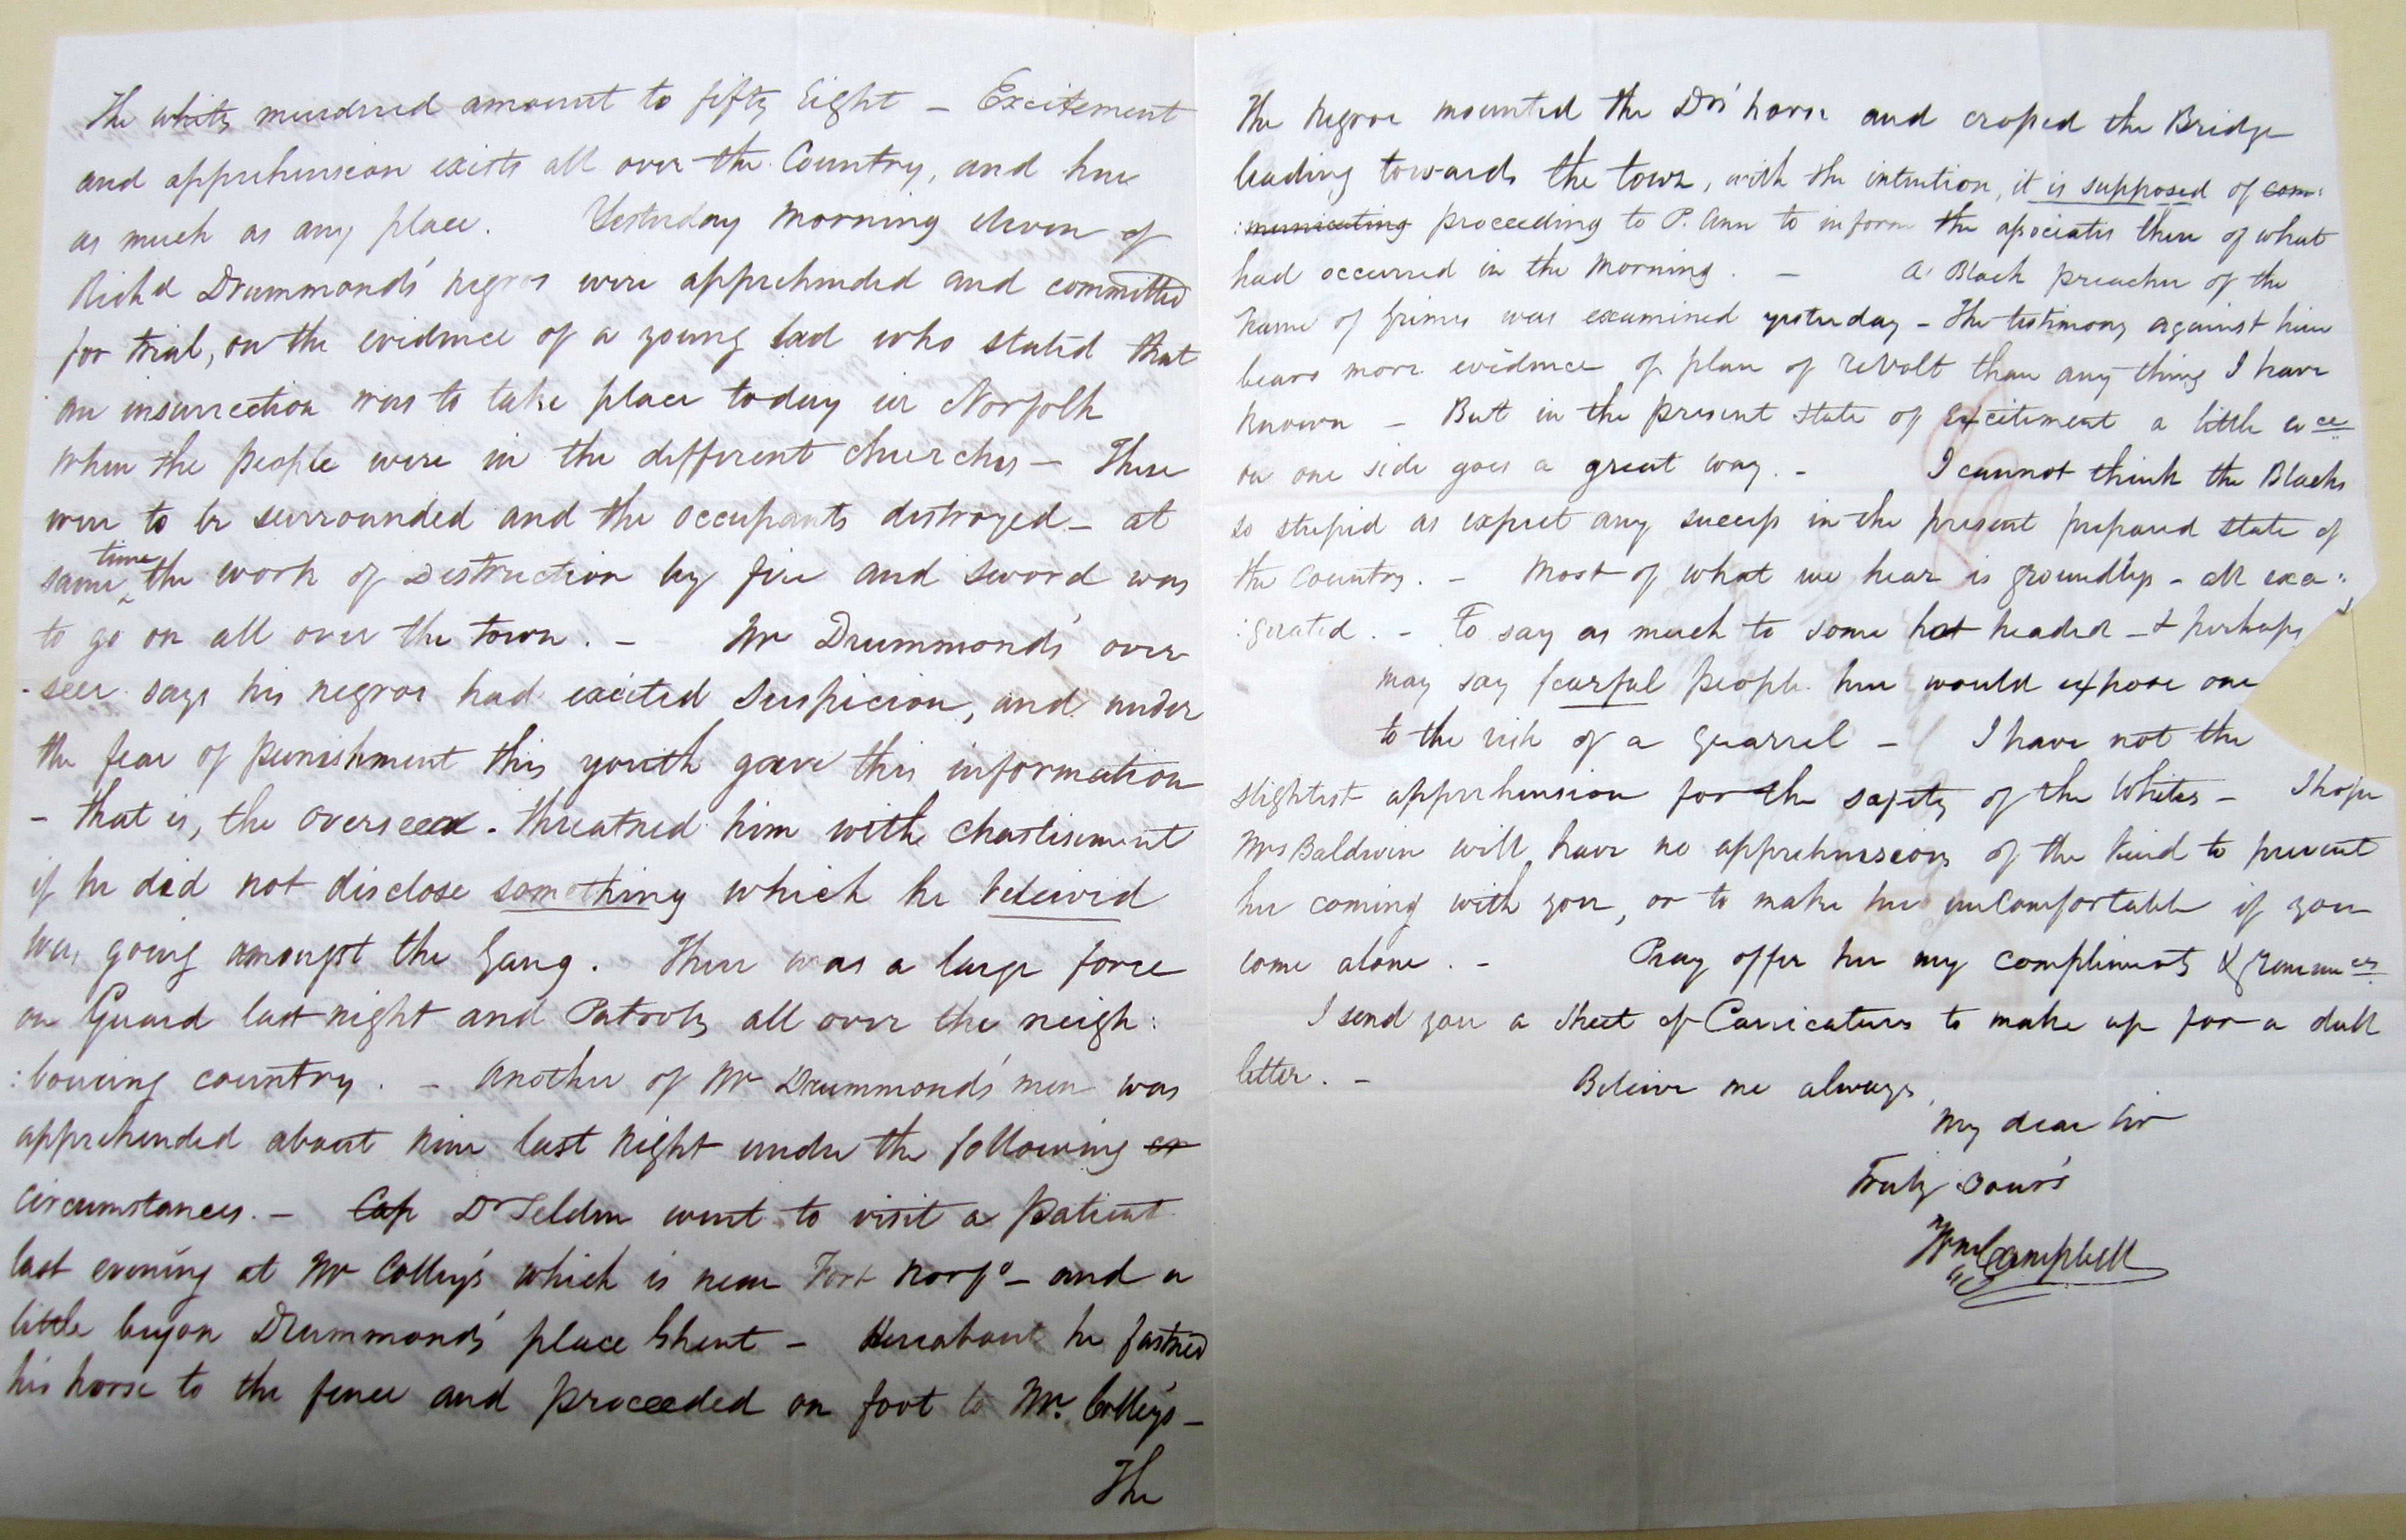 The whites murdered amount to fifty Eight – Excitement
and apprehension exists all over the Country, and here
as much as any place. Yesterday morning eleven of
Richd Drummonds' negros were apprehended and committed
for trial, on the evidence of a young lad who stated that
an insurrection was to take place today in Norfolk
when the people were in the different churches – These
were to be surrounded and the occupants distroyed – at
same time the work of Destruction by fire and sword was
to go on all over the town. – Mr Drummonds' over
-seer says his negroes had excited suspicion, and under
the fear of punishment this youth gave this information
– that is, the overseer - threatned him with chastisement
if he did not disclose something which he beleived
was going amongst the Gang. There was a large force
on Guard last night and Patrols all over the neigh:
:bouring country. – Another of Mr Drummonds' men was
apprehended about nine last night under the following cr
circumstances. – Cap Dr Selden went to visit a patient
last evening at Mr Colley's which is near Fort Norfo – and a
little beyon Drummonds' place Ghent – Hereabout he fastned
his horse to the fence and proceeded on foot to Mr. Colley's –
The
The Negroe mounted the Drs' horse and crossed the Bridge
leading towards the town, with the intention, it is supposed of com:
:municating proceeding to P. Ann to inform the associates there of what
had occurred in the morning. – A Black preacher of the
name of Grimes was examined yesterday – The testimony against him
bears more evidence of plan of revolt than any thing I have
known – But in the present state of excitement a little
on one side goes a great way. – I cannot think the Blacks
so stupid as expect any success in the present prepared state of
the Country. – Most of what we hear is groundless – all exa:
:gerated. – To say as much to some hot headed – & perhaps
may say fearful people here would expose one
to the risk of a quarrel – I have not the
slightest apprehension for the safety of the Whites – I hope
Mrs Baldwin will have no apprehensions of the kind to prevent
her coming with you, or to make her uncomfortable if you
come alone. – Pray offer her my compliments &
I send you a sheet of Caricatures to make up for a dull
letter. – Beleive me always
My dear Sir
Truly Yours'
Wm Campbell